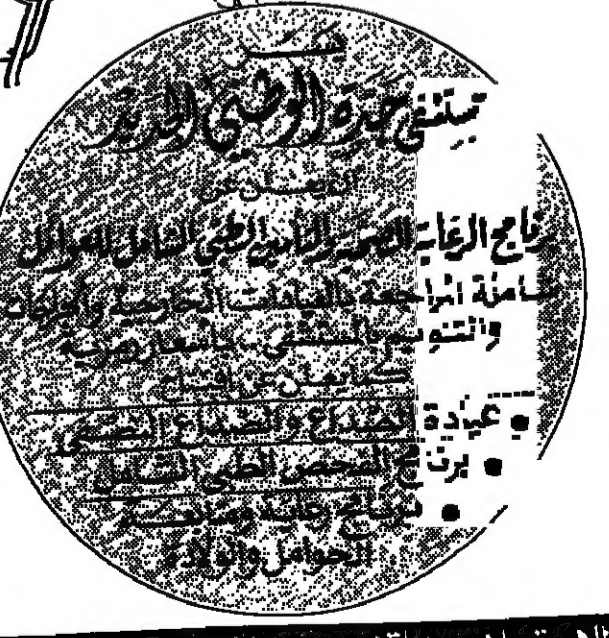 مستشفى جدة الوطني الجديد
أن يعلن عن
برنامج الرعاية الصحية والتأمين الطبي الشامل للعوائل
شاملة المراجعة بالعيادات الخارجية والجراحات
والتنويم بالمستشفى .. بأسعار رمزية
كما يعلن عن افتتاح
• عيادة الصداع والصداع النصفي
• برنامج الفحص الطبي الشامل
• برنامج رعاية ومتابعة
الحوامل والولادة